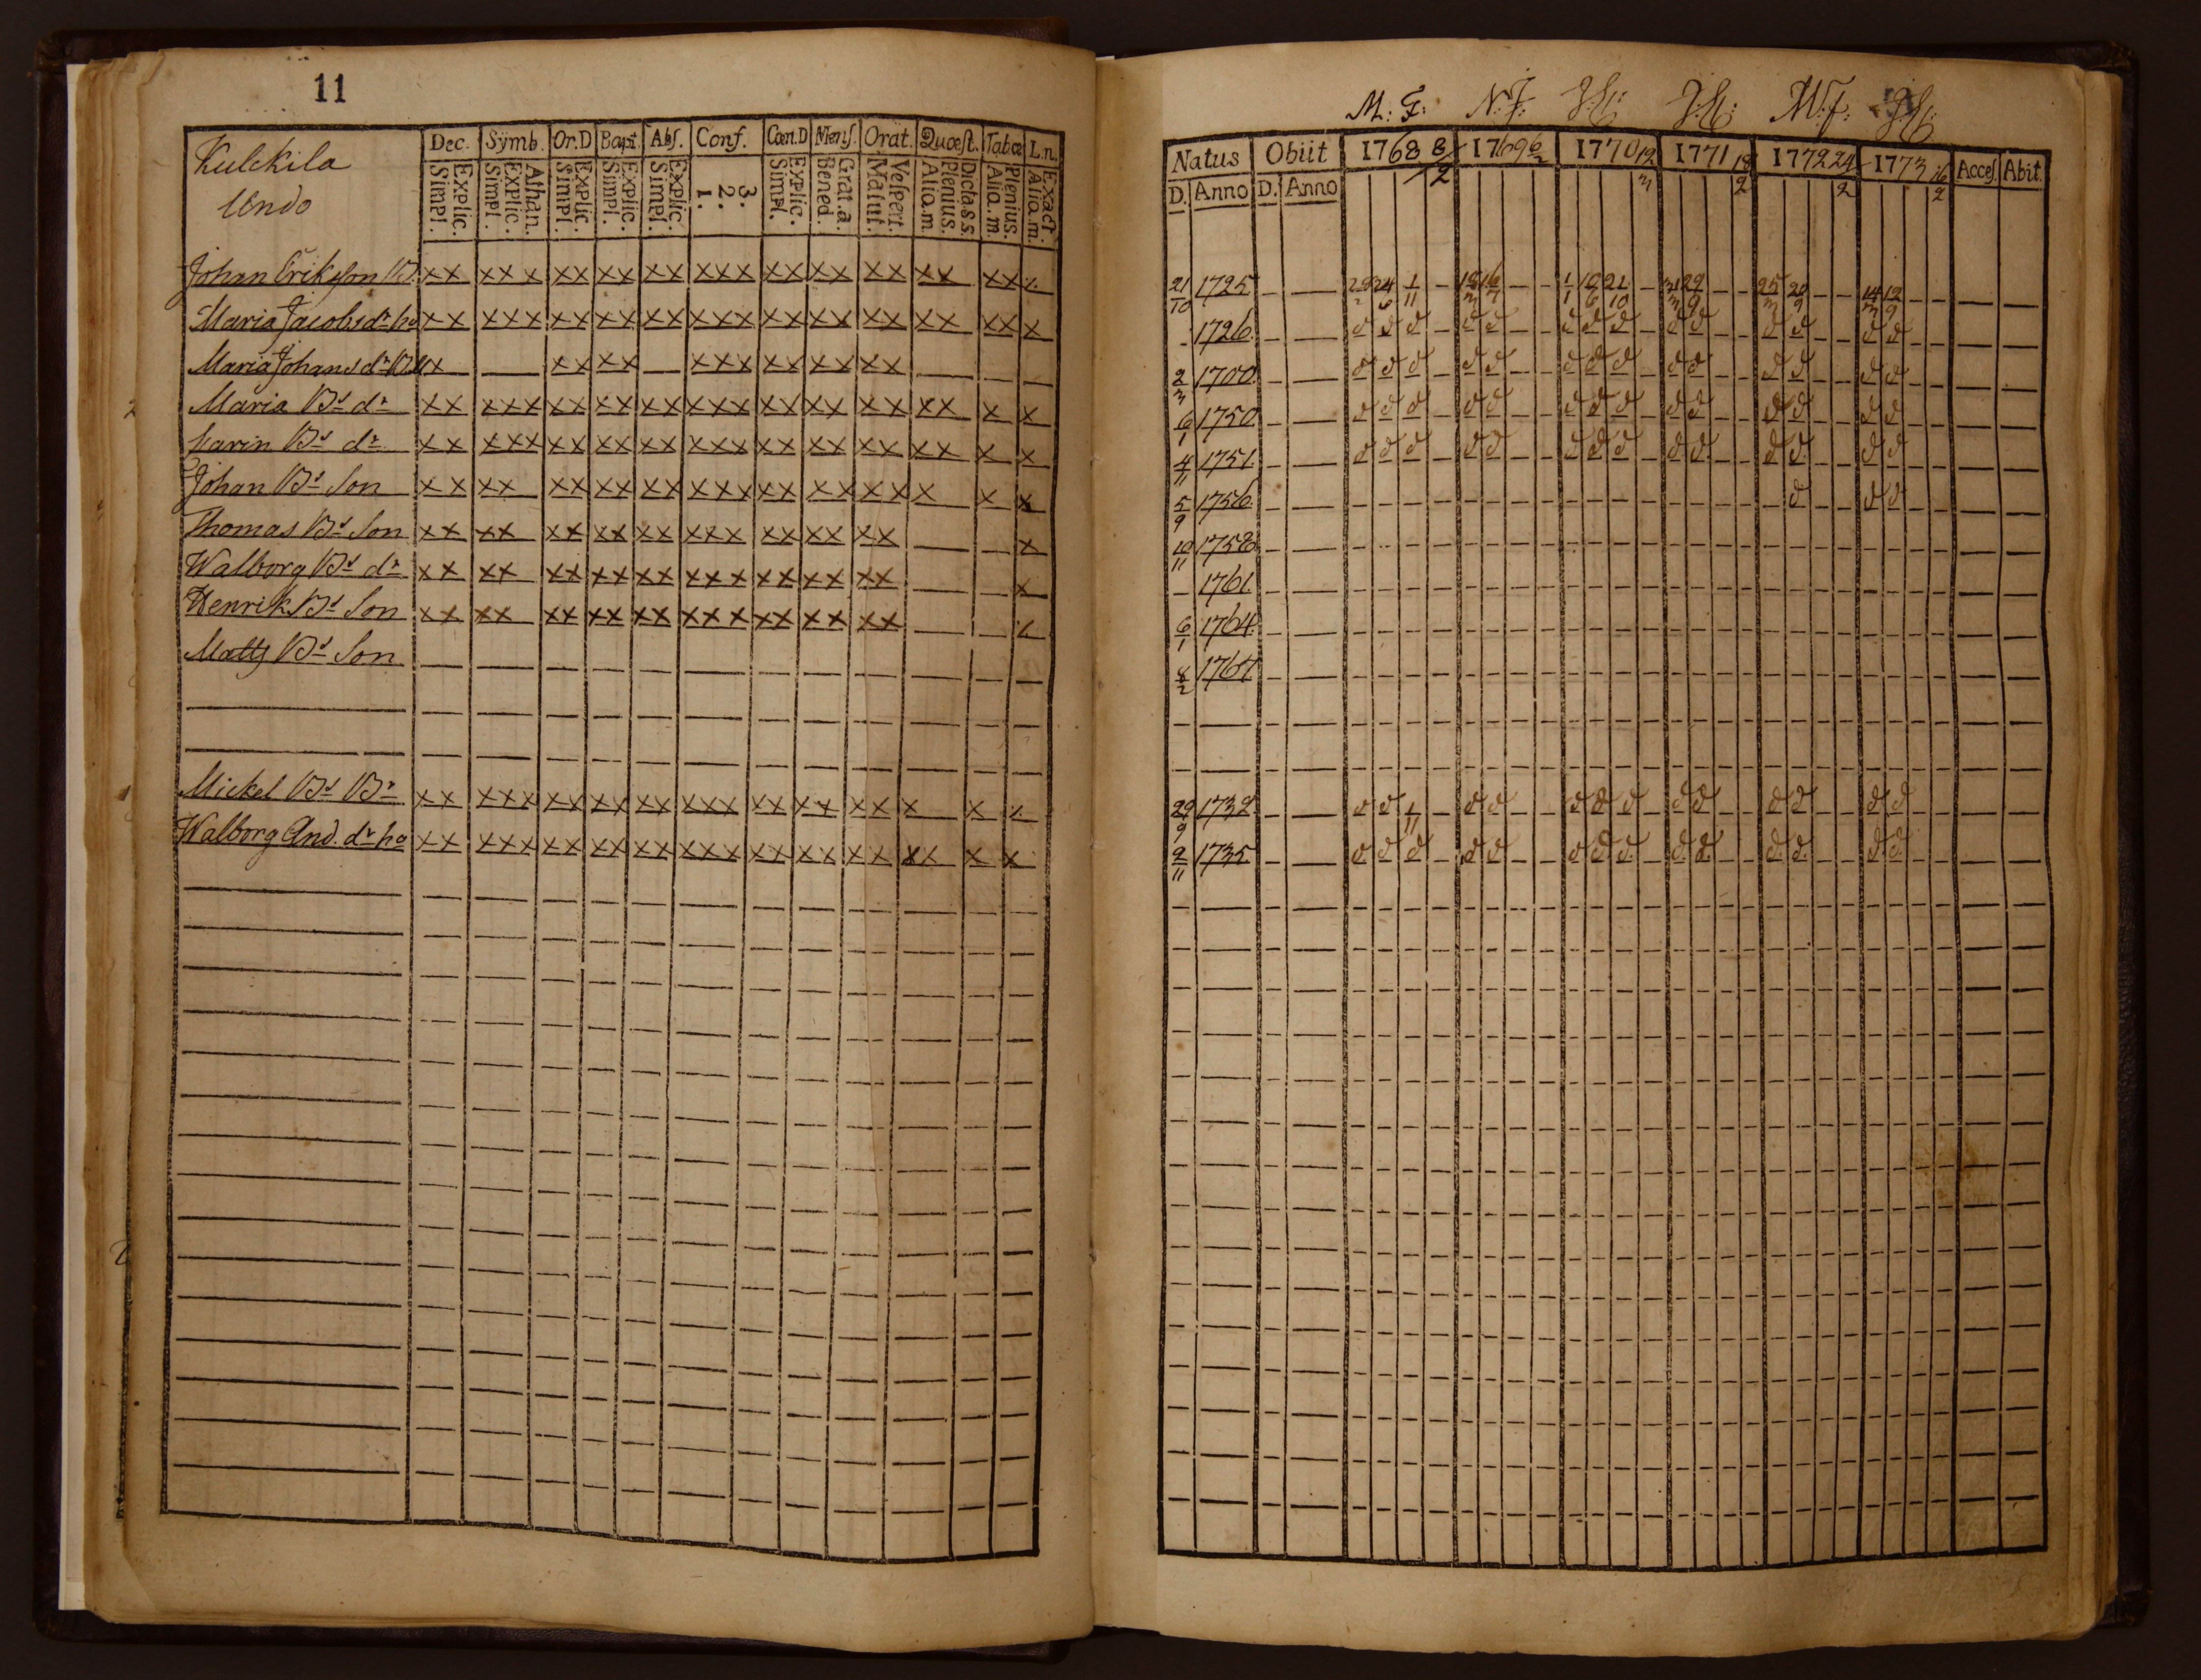 11
Kulckila
Undo
Dec. Symb. Or.D Bapt. Abſ. Conf. Cœn.D Menſ. Orat. Quœſt. Tabœ L.n.
Simpl. Explic. Simpl. Explic. Athan. Simpl. Explic. Simpl. Explic. Simpl. Explic. 1. 2. 3. Simpl. Explic. Bened. Grat.a. Matut. Veſpert. Alia.m. Plenius. Dict.as.s. Alia.m. Plenius. Alia.m. Exact.
Johan Eriksson B. xx xxx xx xx xx xxx xx xx xx xx xx x
Maria Jacobsdr ha xx xxx xx xx xx xxx xx xx xx xx xx x
Maria Johansdr xx xx xx xxx xx xx xx
Maria Bs dr xx xxx xx xx xx xxx xx xx xx xx x x
Carin Bs dr xx xxx xx xx xx xxx xx xx xx xx x x
Johan Bs Son xx xx xx xx xx xxx xx xx xx x x x
Thomas Bs Son xx xx xx xx xx xxx xx xx xx x
Walborg Bs dr xx xx xx xx xx xxx xx xx xx x
Henrik Bs Son xx xx xx xx xx xxx xx xx xx x
Matts Bs Son
Mickel Bs Br xx xxx xx xx xx xxx xx xx xx x x x
Walborg And. dr ha xx xxx xx xx xx xxx xx xx xx xx x x
M. F: N: F: J.H: J.H: M: F: J.H:
Natus Obiit 1768 8/2 1769 6/2 1770 12/3 1771 18/2 1772 24/2 1773 16/2 Acceſ. Abit.
D. Anno D. Anno
21/10 1725 24/6 1/11 1/1 10/6 21/10 29/9 25/3 20/9 14/3 12/9
1726 d d d d d d d d d d d d d
2/3 1700 d d d d d d d d d d d d d
6/1 1750 d d d d d d d d d d d d d
4/11 1751 d d d d d d d d d d d d d
5/9 1756 d d d
10/11 1758
1761
6/1 1764
8/2 1767
29/9 1738 d d 1/11 d d d d d d d d d d d
2/11 1735 d d d d d d d d d d d d d d